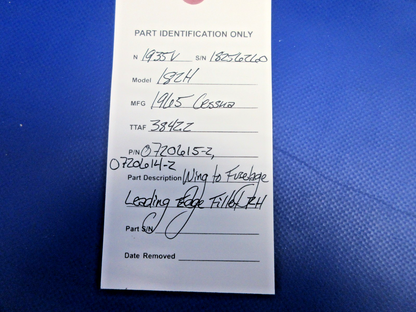 PART IDENTIFICATION ONLY
N 1935V S/N 18256260
Model 182H
MFG 1965 Cessna
TTAF 3842.2
P/N 0720615-2,
0720614-2
Part Description Wing to Fuselage
Leading Edge Fillet RH
Part S/N
Date Removed